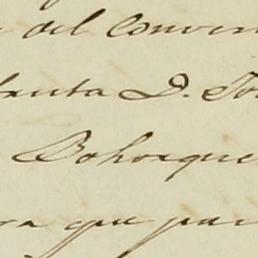 del Conven
Santa D. Jo
Bohorque
ra que par